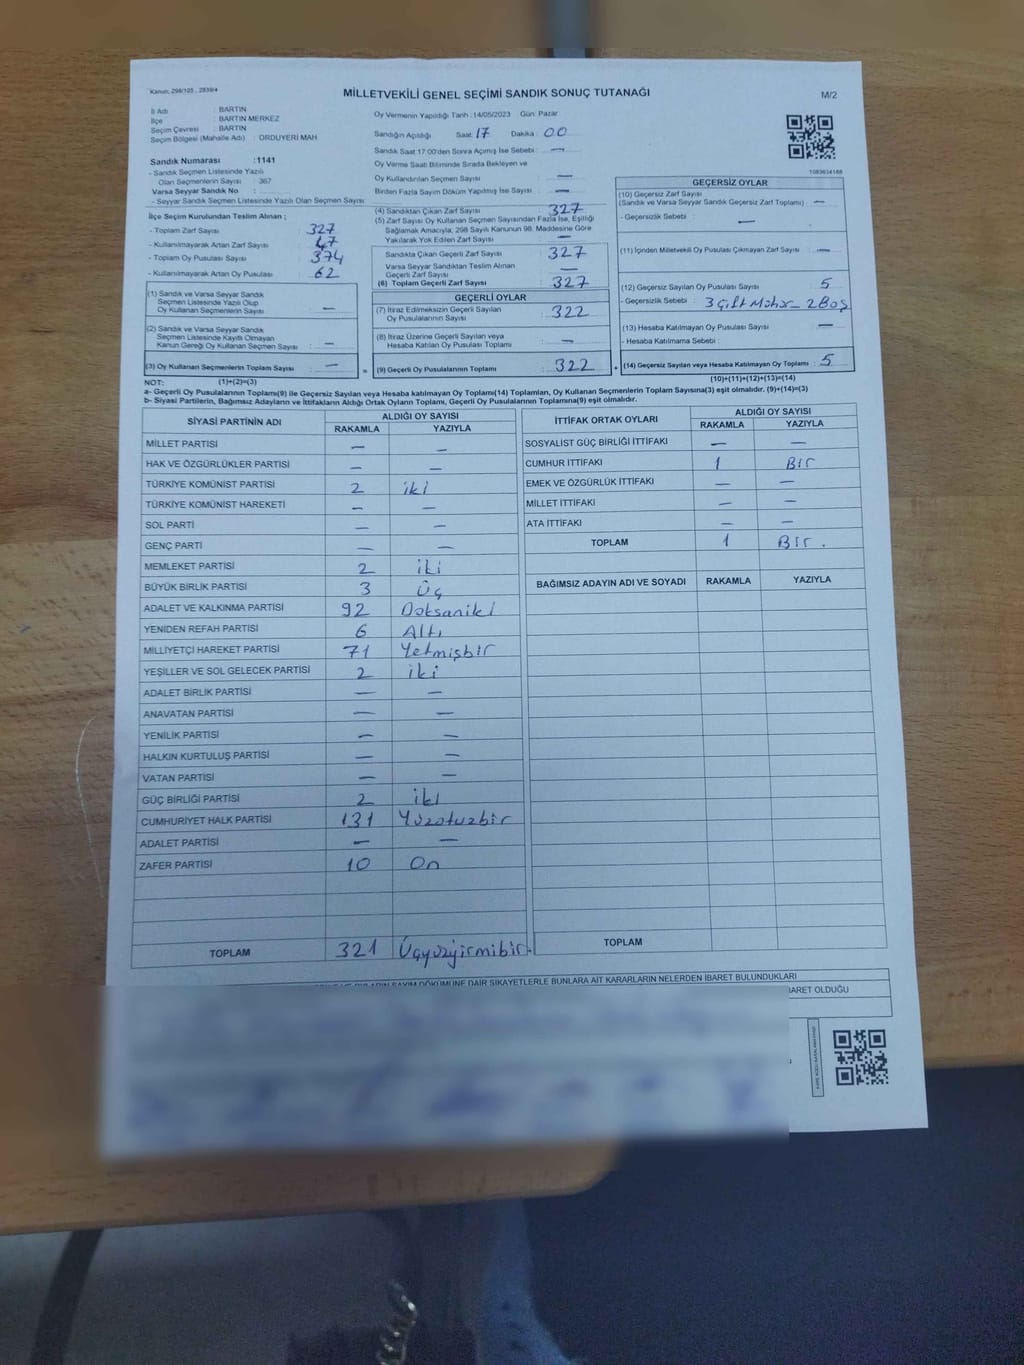 Kanun; 298/105 , 2839/4
MİLLETVEKİLİ GENEL SEÇİMİ SANDIK SONUÇ TUTANAĞI
M/2
İl Adı : BARTIN
İlçe : BARTIN MERKEZ
Seçim Çevresi : BARTIN
Seçim Bölgesi (Mahalle Adı) : ORDUYERI MAH
Sandık Numarası :1141
- Sandık Seçmen Listesinde Yazılı
Olan Seçmenlerin Sayısı : 367
Varsa Seyyar Sandık No :
- Seyyar Sandık Seçmen Listesinde Yazılı Olan Seçmen Sayısı
İlçe Seçim Kurulundan Teslim Alınan ;
- Toplam Zarf Sayısı 327
- Kullanılmayarak Artan Zarf Sayısı 47
- Toplam Oy Pusulası Sayısı 374
- Kullanılmayarak Artan Oy Pusulası 62
(1) Sandık ve Varsa Seyyar Sandık
Seçmen Listesinde Yazılı Olup
Oy Kullanan Seçmenlerin Sayısı : —
(2) Sandık ve Varsa Seyyar Sandık
Seçmen Listesinde Kayıtlı Olmayan
Kanun Gereği Oy Kullanan Seçmen Sayısı : —
(3) Oy Kullanan Seçmenlerin Toplam Sayısı : —
Oy Vermenin Yapıldığı Tarih :14/05/2023 Gün: Pazar
Sandığın Açıldığı Saat: 17 Dakika : 00
Sandık Saat 17:00'den Sonra Açılmış İse Sebebi : —
Oy Verme Saati Bitiminde Sırada Bekleyen ve
Oy Kullandırılan Seçmen Sayısı : —
Birden Fazla Sayım Döküm Yapılmış İse Sayısı : —
(4) Sandıktan Çıkan Zarf Sayısı : 327
(5) Zarf Sayısı Oy Kullanan Seçmen Sayısından Fazla İse, Eşitliği
Sağlamak Amacıyla, 298 Sayılı Kanunun 98. Maddesine Göre
Yakılarak Yok Edilen Zarf Sayısı : —
Sandıkta Çıkan Geçerli Zarf Sayısı : 327
Varsa Seyyar Sandıktan Teslim Alınan
Geçerli Zarf Sayısı : —
(6) Toplam Geçerli Zarf Sayısı : 327
GEÇERLİ OYLAR
(7) İtiraz Edilmeksizin Geçerli Sayılan
Oy Pusulalarının Sayısı : 322
(8) İtiraz Üzerine Geçerli Sayılan veya
Hesaba Katılan Oy Pusulaları Toplamı : —
= (9) Geçerli Oy Pusulalarının Toplamı : 322 +
1083634188
GEÇERSİZ OYLAR
(10) Geçersiz Zarf Sayısı
(Sandık ve Varsa Seyyar Sandık Geçersiz Zarf Toplamı) : —
- Geçersizlik Sebebi : —
(11) İçinden Milletvekili Oy Pusulası Çıkmayan Zarf Sayısı : —
(12) Geçersiz Sayılan Oy Pusulası Sayısı : 5
- Geçersizlik Sebebi : 3 Çift Mühür - 2 Boş
(13) Hesaba Katılmayan Oy Pusulası Sayısı : —
- Hesaba Katılmama Sebebi :
(14) Geçersiz Sayılan veya Hesaba Katılmayan Oy Toplamı : 5
NOT: (1)+(2)=(3) (10)+(11)+(12)+(13)=(14)
a- Geçerli Oy Pusulalarının Toplamı(9) ile Geçersiz Sayılan veya Hesaba katılmayan Oy Toplamı(14) Toplamları, Oy Kullanan Seçmenlerin Toplam Sayısına(3) eşit olmalıdır. (9)+(14)=(3)
b- Siyasi Partilerin, Bağımsız Adayların ve İttifakların Aldığı Ortak Oyların Toplamı, Geçerli Oy Pusulalarının Toplamına(9) eşit olmalıdır.
SİYASİ PARTİNİN ADI ALDIĞI OY SAYISI
RAKAMLA YAZIYLA
MİLLET PARTİSİ — —
HAK VE ÖZGÜRLÜKLER PARTİSİ — —
TÜRKİYE KOMÜNİST PARTİSİ 2 iki
TÜRKİYE KOMÜNİST HAREKETİ — —
SOL PARTİ — —
GENÇ PARTİ — —
MEMLEKET PARTİSİ 2 iki
BÜYÜK BİRLİK PARTİSİ 3 Üç
ADALET VE KALKINMA PARTİSİ 92 Doksaniki
YENİDEN REFAH PARTİSİ 6 Altı
MİLLİYETÇİ HAREKET PARTİSİ 71 Yetmişbir
YEŞİLLER VE SOL GELECEK PARTİSİ 2 iki
ADALET BİRLİK PARTİSİ — —
ANAVATAN PARTİSİ — —
YENİLİK PARTİSİ — —
HALKIN KURTULUŞ PARTİSİ — —
VATAN PARTİSİ — —
GÜÇ BİRLİĞİ PARTİSİ 2 iki
CUMHURİYET HALK PARTİSİ 131 Yüzotuzbir
ADALET PARTİSİ — —
ZAFER PARTİSİ 10 On
TOPLAM 321 Üçyüzyirmibir.
İTTİFAK ORTAK OYLARI ALDIĞI OY SAYISI
RAKAMLA YAZIYLA
SOSYALİST GÜÇ BİRLİĞİ İTTİFAKI — —
CUMHUR İTTİFAKI 1 Bir
EMEK VE ÖZGÜRLÜK İTTİFAKI — —
MİLLET İTTİFAKI — —
ATA İTTİFAKI — —
TOPLAM 1 Bir.
BAĞIMSIZ ADAYIN ADI VE SOYADI RAKAMLA YAZIYLA
TOPLAM
SAYIM DÖKÜMÜNE DAİR ŞİKAYETLERLE BUNLARA AİT KARARLARIN NELERDEN İBARET BULUNDUKLARI
İBARET OLDUĞU